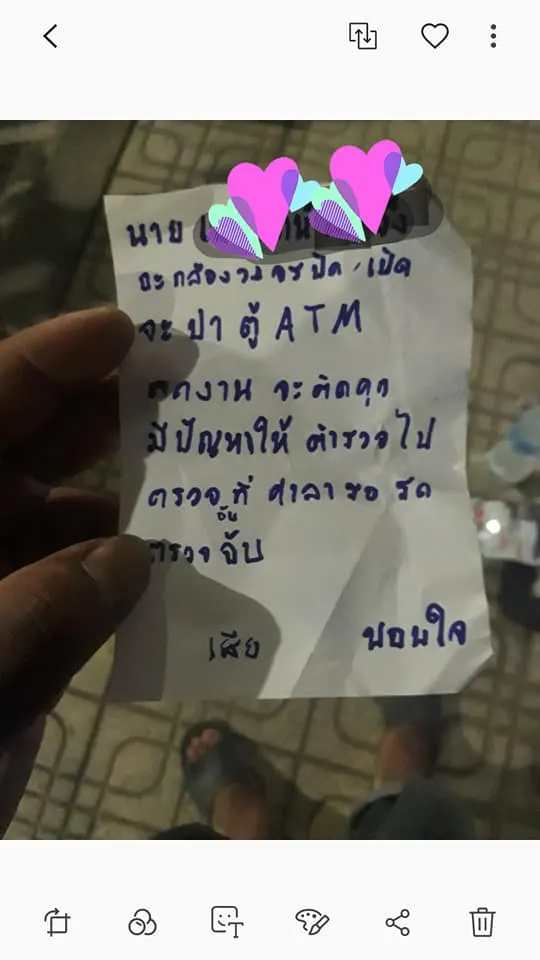 นาย
จะ กล้องวงจรปิด / เปิด
จะ ป่า ตู้ ATM
ตกงาน จะติดคุก
มีปัญหาให้ ตำรวจไป
ตรวจ ที่ ศาลา รอ รถ
ตรวจ จับ
เสีย พอนใจ